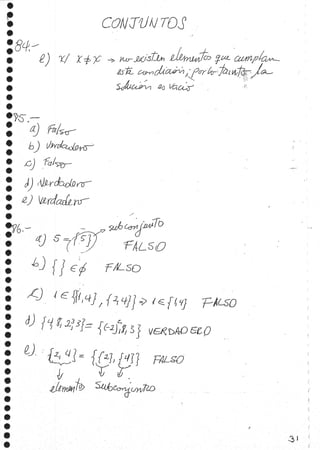 CONJUNTOS
84.-
e) x/ x≠x → no existen elementos que cumplan
esta condición, por lo tanto la
solución es vacío
85.-
a) Falso
b) Verdadero
c) Falso
d) Verdadero
e) Verdadero
86.-
a) 5 = {5} → subconjunto
FALSO
b) { } ∈ ϕ FALSO
c) 1 ∈ {{1,4}, {3,4}} ⇒ 1 ∈ {1,4} FALSO
d) {4, 8, 2+3} = {(-2)², 8, 5} VERDADERO
e) {2, 4} = {{2}, {4}} FALSO
elementos Subconjuntos
31